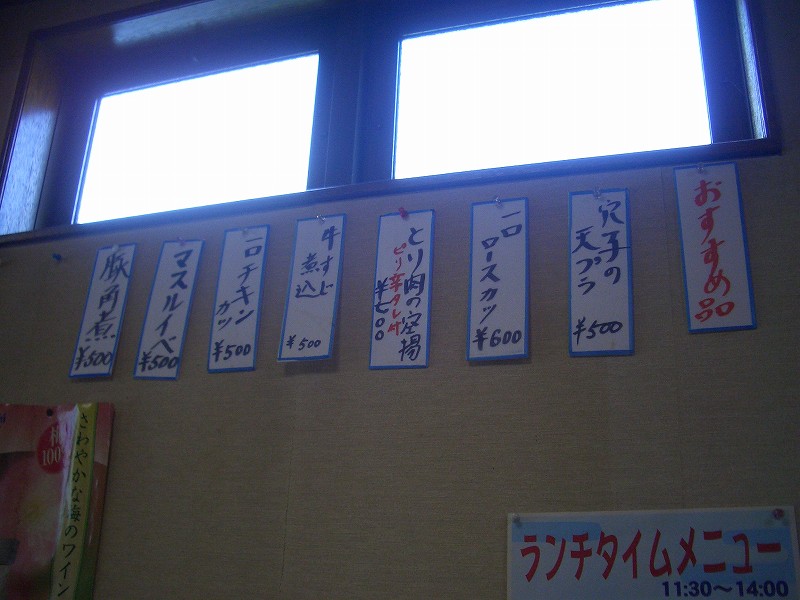 おすすめ品
穴子の
天プラ
¥500
一口
ロースカツ
¥600
とり肉の空揚
ピリ辛タレ付
¥500
牛すじ
煮込
¥500
一口チキン
カツ
¥500
マスルイベ
¥500
豚角煮
¥500
さわやかな梅のワイン
100
ランチタイムメニュー
11:30〜14:00